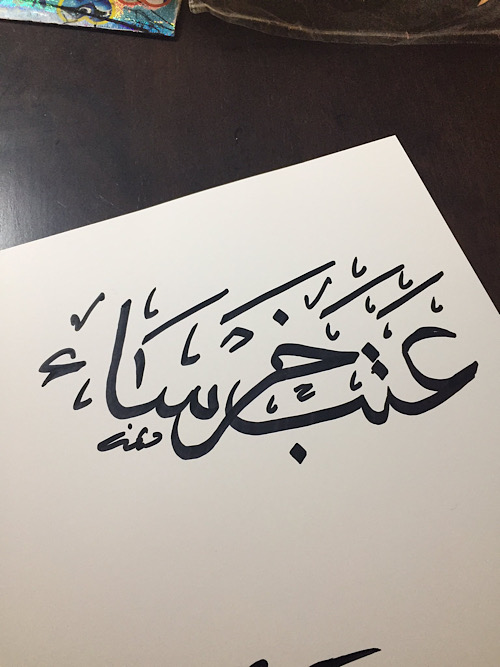 عتب خرساء